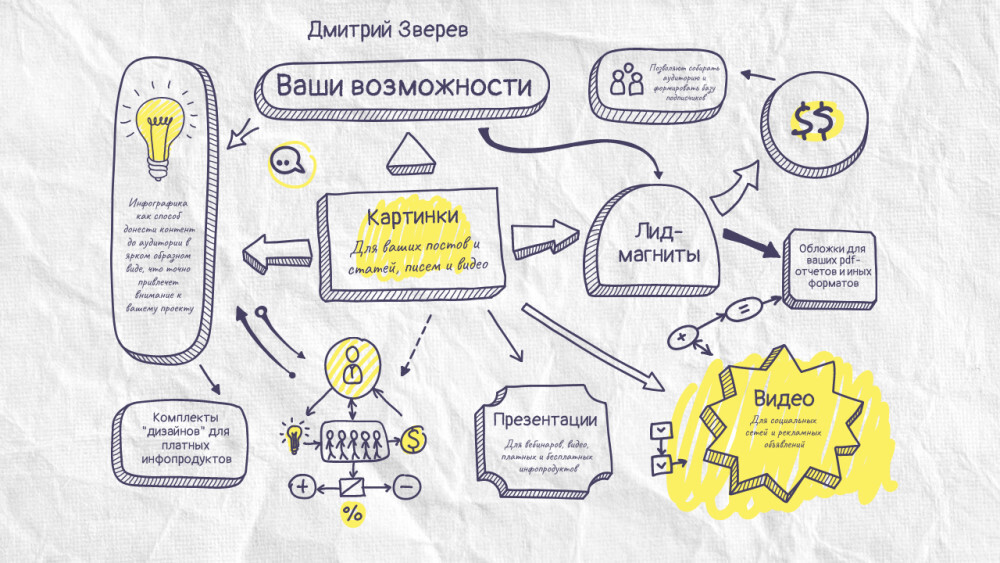 Дмитрий Зверев
Ваши возможности
Позволяют собирать
аудиторию и
формировать базу
подписчиков
$$
Инфографика
как способ
донести контент
до аудитории в
ярком образном
виде, что точно
привлечет
внимание к
вашему проекту
Картинки
Для ваших постов и
статей, писем и видео
Лид-
магниты
Обложки для
ваших pdf-
отчетов и иных
форматов
Комплекты
"дизайнов" для
платных
инфопродуктов
$
%
Презентации
Для вебинаров, видео,
платных и бесплатных
инфопродуктов
Видео
Для социальных
сетей и рекламных
объявлений